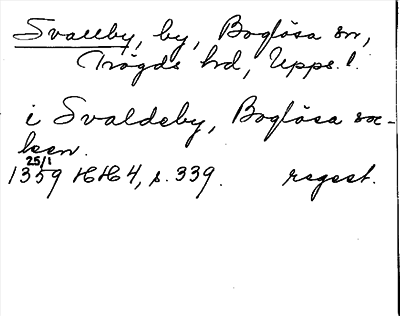 Svallby, by, Boglösa sn,
Trögds hd, Upps. l.
i Svaldeby, Boglösa soc-
ken.
25/1
1359 HH 4, s. 339. regest.